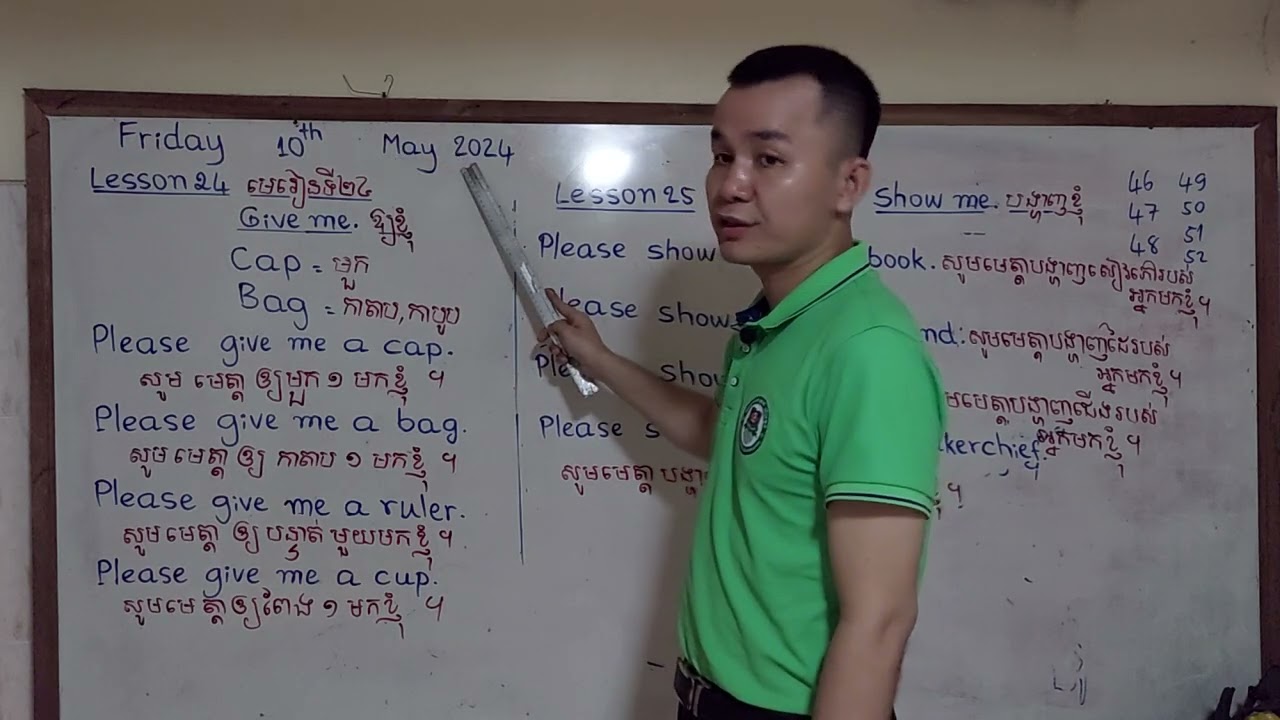 Friday 10th May 2024
Lesson 24 មេរៀនទី២៤
Give me. ឱ្យខ្ញុំ
Cap = មួក
Bag = កាតាប, កាបូប
Please give me a cap.
សូម មេត្តា ឲ្យមួក ១ មកខ្ញុំ ។
Please give me a bag.
សូម មេត្តា ឲ្យ កាតាប ១ មកខ្ញុំ ។
Please give me a ruler.
សូមមេត្តា ឲ្យ បន្ទាត់ មួយមកខ្ញុំ ។
Please give me a cup.
សូមមេត្តាឲ្យពែង ១ មកខ្ញុំ ។
Lesson 25 Show me. បង្ហាញខ្ញុំ
46 49
47 50
48 51
52
Please show book. សូមមេត្តាបង្ហាញសៀវភៅរបស់
អ្នកមកខ្ញុំ ។
Please show nd: សូមមេត្តាបង្ហាញដៃរបស់
អ្នកមកខ្ញុំ ។
មមេត្តាបង្ហាញជើងរបស់
អ្នកមកខ្ញុំ ។
Please kerchief.
សូមមេត្តា